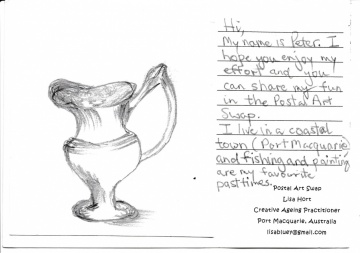 Hi,
My name is Peter. I
hope you enjoy my
effort and you
can share my fun
in the Postal Art
Swap.
I live in a coastal
town (Port Macquarie
and fishing and painting
are my favourite
pastimes.
Postal Art Swap
Lisa Hort
Creative Ageing Practitioner
Port Macquarie, Australia
lisabluer@gmail.com